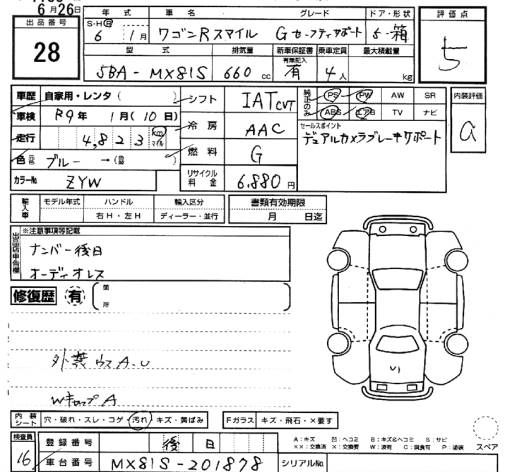 6月26日
出品番号 28
年式 S・H・日 6年 1月
車名 ワゴンRスマイル
グレード Gセーフティサポート
ドア・形状 5・箱
評価点 5
型式 5BA-MX81S
排気量 660cc
新車保証書 有無記入 有
乗車定員 4人
最大積載量 kg
車歴 自家用・レンタ( )
シフト IAT CVT
純正のみ PS PW AW SR
ABS エアB TV ナビ
内装評価 a
車検 R9年 1月(10日)
冷房 AAC
セールスポイント
デュアルカメラブレーキサポート
走行 4,823 km マイル
燃料 G
色 ブルー→( )
カラーNo ZYW
リサイクル料金 6,880円
輸入車 モデル年式 ハンドル 輸入区分 書類有効期限
右H・左H ディーラー・並行 月 日迄
※注意事項等記載
出品店申告欄
ナンバー後日
オーディオレス
修復歴 有 (箇所 )
外装ウスA.U
WキャップA
内装シート 穴・破れ・スレ・コゲ 汚れ キズ・黄ばみ
Fガラス キズ・飛石・×要す
検査員 16
登録番号 後日
A:キズ U:ヘコミ B:キズ&ヘコミ S:サビ
××:交換済 X:要交換 W:波有 C:腐食有 P:塗装
スペア
車台番号 MX81S-201878
シリアルNo